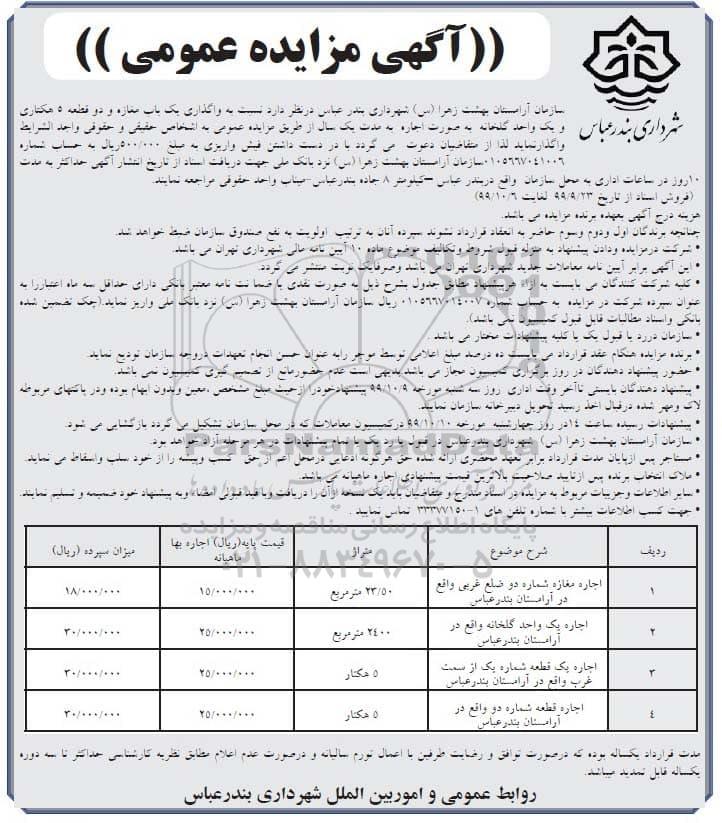 ((آگهی مزایده عمومی))
شهرداری بندرعباس
سازمان آرامستان بهشت زهرا (س) شهرداری بندر عباس درنظر دارد نسبت به واگذاری یک باب مغازه و دو قطعه ۵ هکتاری
و یک واحد گلخانه به صورت اجاره به مدت یک سال از طریق مزایده عمومی به اشخاص حقیقی و حقوقی واجد الشرایط
واگذارنماید لذا از متقاضیان دعوت می گردد با در دست داشتن فیش واریزی به مبلغ ۵۰۰/۰۰۰ریال به حساب شماره
۰۱۰۵۶۶۷۰۴۱۰۰۶سازمان آرامستان بهشت زهرا (س) نزد بانک ملی جهت دریافت اسناد از تاریخ انتشار آگهی حداکثر به مدت
۱۰روز در ساعات اداری به محل سازمان واقع دربندر عباس –کیلومتر ۸ جاده بندرعباس-میناب واحد حقوقی مراجعه نمایند.
(فروش اسناد از تاریخ ۹۹/۹/۲۳ لغایت ۹۹/۱۰/۶)
هزینه درج آگهی بعهده برنده مزایده می باشد.
چنانچه برندگان اول ودوم وسوم حاضر به انعقاد قرارداد نشوند سپرده آنان به ترتیب اولویت به نفع صندوق سازمان ضبط خواهد شد.
• شرکت درمزایده ودادن پیشنهاد به منزله قبول شروط وتکالیف موضوع ماده ۱۰ آیین نامه مالی شهرداری تهران می باشد.
• این آگهی برابر آیین نامه معاملات جدید شهرداری تهران می باشد وصرفایک نوبت منتشر می گردد.
• کلیه شرکت کنندگان می بایست به ازاء هرپیشنهاد مطابق جدول بشرح ذیل به صورت نقدی یا ضما نت نامه معتبر بانکی دارای حداقل سه ماه اعتباررا به
عنوان سپرده شرکت در مزایده به حساب شماره ۰۱۰۵۶۶۷۰۱۴۰۰۷ ریال سازمان آرامستان بهشت زهرا (س) نزد بانک ملی واریز نماید.(چک تضمین شده
بانکی واسناد مطالبات قابل قبول کمیسیون نمی باشد).
• سازمان دررد یا قبول یک یا کلیه پیشنهادات مختار می باشد .
• برنده مزایده هنگام عقد قرارداد می بایست ده درصد مبلغ اعلامی توسط موجر رابه عنوان حسن انجام تعهدات دروجه سازمان تودیع نماید.
• حضور پیشنهاد دهندگان در روز برگزاری کمیسیون مجاز می باشد.بدیهی است عدم حضورمانع از تصمیم گیری کمیسیون نمی باشد.
• پیشنهاد دهندگان بایستی تاآخر وقت اداری روز سه شنبه مورخه ۹۹/۱۰/۹ پیشنهادخودرا ازحیث مبلغ مشخص ،معین وبدون ابهام بوده ودر پاکتهای مربوطه
لاک ومهر شده درقبال اخذ رسید تحویل دبیرخانه سازمان نمایند.
• پیشنهادات رسیده ساعت ۱۴در روز چهارشنبه مورخه ۹۹/۱۰/۱۰ درکمیسیون معاملات که در محل سازمان تشکیل می گردد بازگشایی می شود.
• سازمان آرامستان بهشت زهرا (س) شهرداری بندرعباس در قبول یا رد یک یا تمام پیشنهادات در هر مرحله آزاد خواهد بود.
• مستاجر پس ازپایان مدت قرارداد برابر تعهد محضری ارائه شده حق هرگونه ادعایی درمحل اعم از حق کسب وپیشه را از خود سلب واسقاط می نماید.
• ملاک انتخاب برنده پس ازتایید صلاحیت بالاترین قیمت پیشنهادی اجاره ماهیانه می باشد.
• سایر اطلاعات وجزییات مربوط به مزایده در اسناد مندرج و متقاضیان باید یک نسخه ازآن را دریافت وباقید قبولی امضاء وبه پیشنهاد خود ضمیمه و تسلیم نمایند.
• جهت کسب اطلاعات بیشتر با شماره تلفن های ۱-۳۳۳۷۷۱۵۰ تماس نمایید .
ParsNamadData
پایگاه اطلاع رسانی مناقصه و مزایده
۰۲۱-۸۸۳۴۹۶۷۰-۵
ردیف شرح موضوع متراژ قیمت پایه(ریال) اجاره بها ماهیانه میزان سپرده (ریال)
۱ اجاره مغازه شماره دو ضلع غربی واقع در آرامستان بندرعباس ۲۳/۵۰ مترمربع ۱۵/۰۰۰/۰۰۰ ۱۸/۰۰۰/۰۰۰
۲ اجاره یک واحد گلخانه واقع در آرامستان بندرعباس ۲۴۰۰ مترمربع ۲۵/۰۰۰/۰۰۰ ۳۰/۰۰۰/۰۰۰
۳ اجاره یک قطعه شماره یک از سمت غرب واقع در آرامستان بندرعباس ۵ هکتار ۲۵/۰۰۰/۰۰۰ ۳۰/۰۰۰/۰۰۰
۴ اجاره قطعه شماره دو واقع در آرامستان بندرعباس ۵ هکتار ۲۵/۰۰۰/۰۰۰ ۳۰/۰۰۰/۰۰۰
مدت قرارداد یکساله بوده که درصورت توافق و رضایت طرفین با اعمال تورم سالیانه و درصورت عدم اعلام مطابق نظریه کارشناسی حداکثر تا سه دوره
یکساله قابل تمدید میباشد.
روابط عمومی و اموربین الملل شهرداری بندرعباس